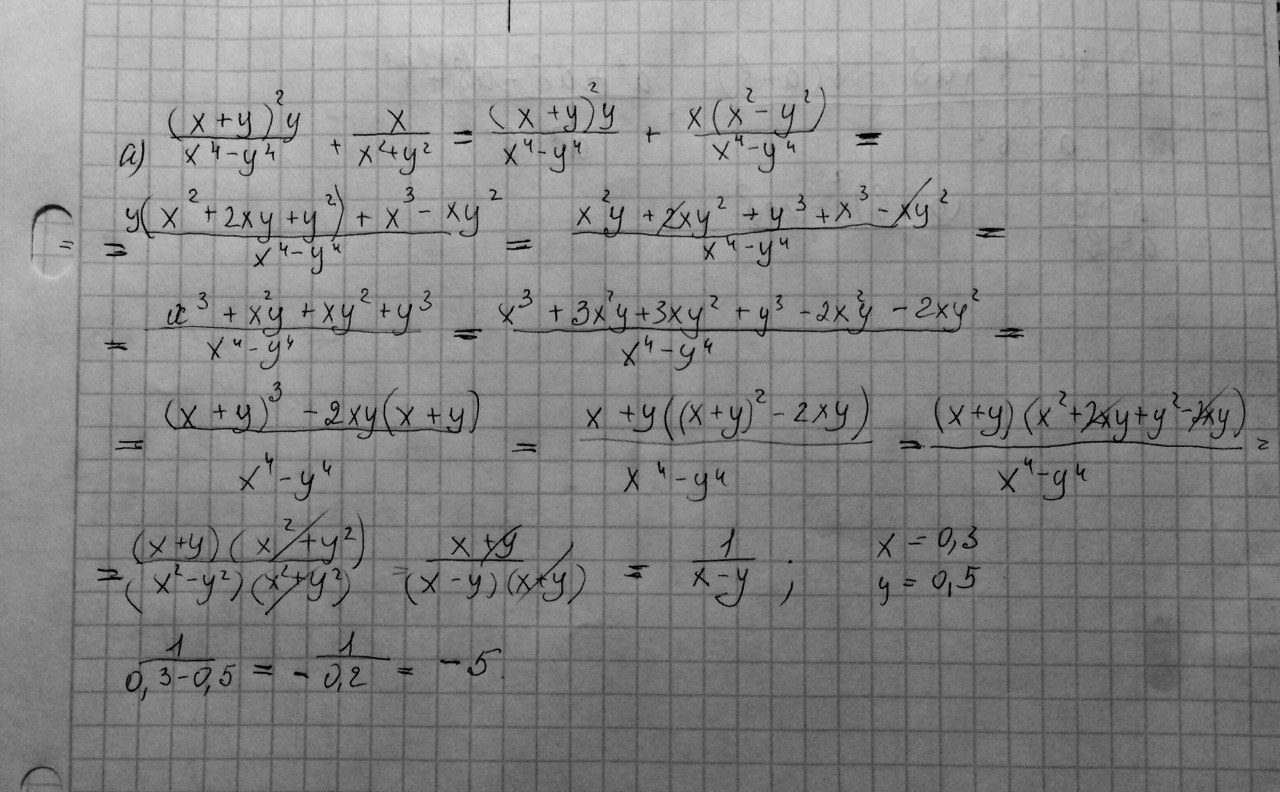 а) \frac{(x+y)^2 y}{x^4-y^4} + \frac{x}{x^2+y^2} = \frac{(x+y)^2 y}{x^4-y^4} + \frac{x(x^2-y^2)}{x^4-y^4} =
= \frac{y(x^2+2xy+y^2)+x^3-xy^2}{x^4-y^4} = \frac{x^2y+2xy^2+y^3+x^3-xy^2}{x^4-y^4} =
= \frac{x^3+x^2y+xy^2+y^3}{x^4-y^4} = \frac{x^3+3x^2y+3xy^2+y^3-2x^2y-2xy^2}{x^4-y^4} =
= \frac{(x+y)^3-2xy(x+y)}{x^4-y^4} = \frac{x+y((x+y)^2-2xy)}{x^4-y^4} = \frac{(x+y)(x^2+2xy+y^2-2xy)}{x^4-y^4} =
= \frac{(x+y)(x^2+y^2)}{(x^2-y^2)(x^2+y^2)} = \frac{x+y}{(x-y)(x+y)} = \frac{1}{x-y}; x=0,3 y=0,5
\frac{1}{0,3-0,5} = -\frac{1}{0,2} = -5